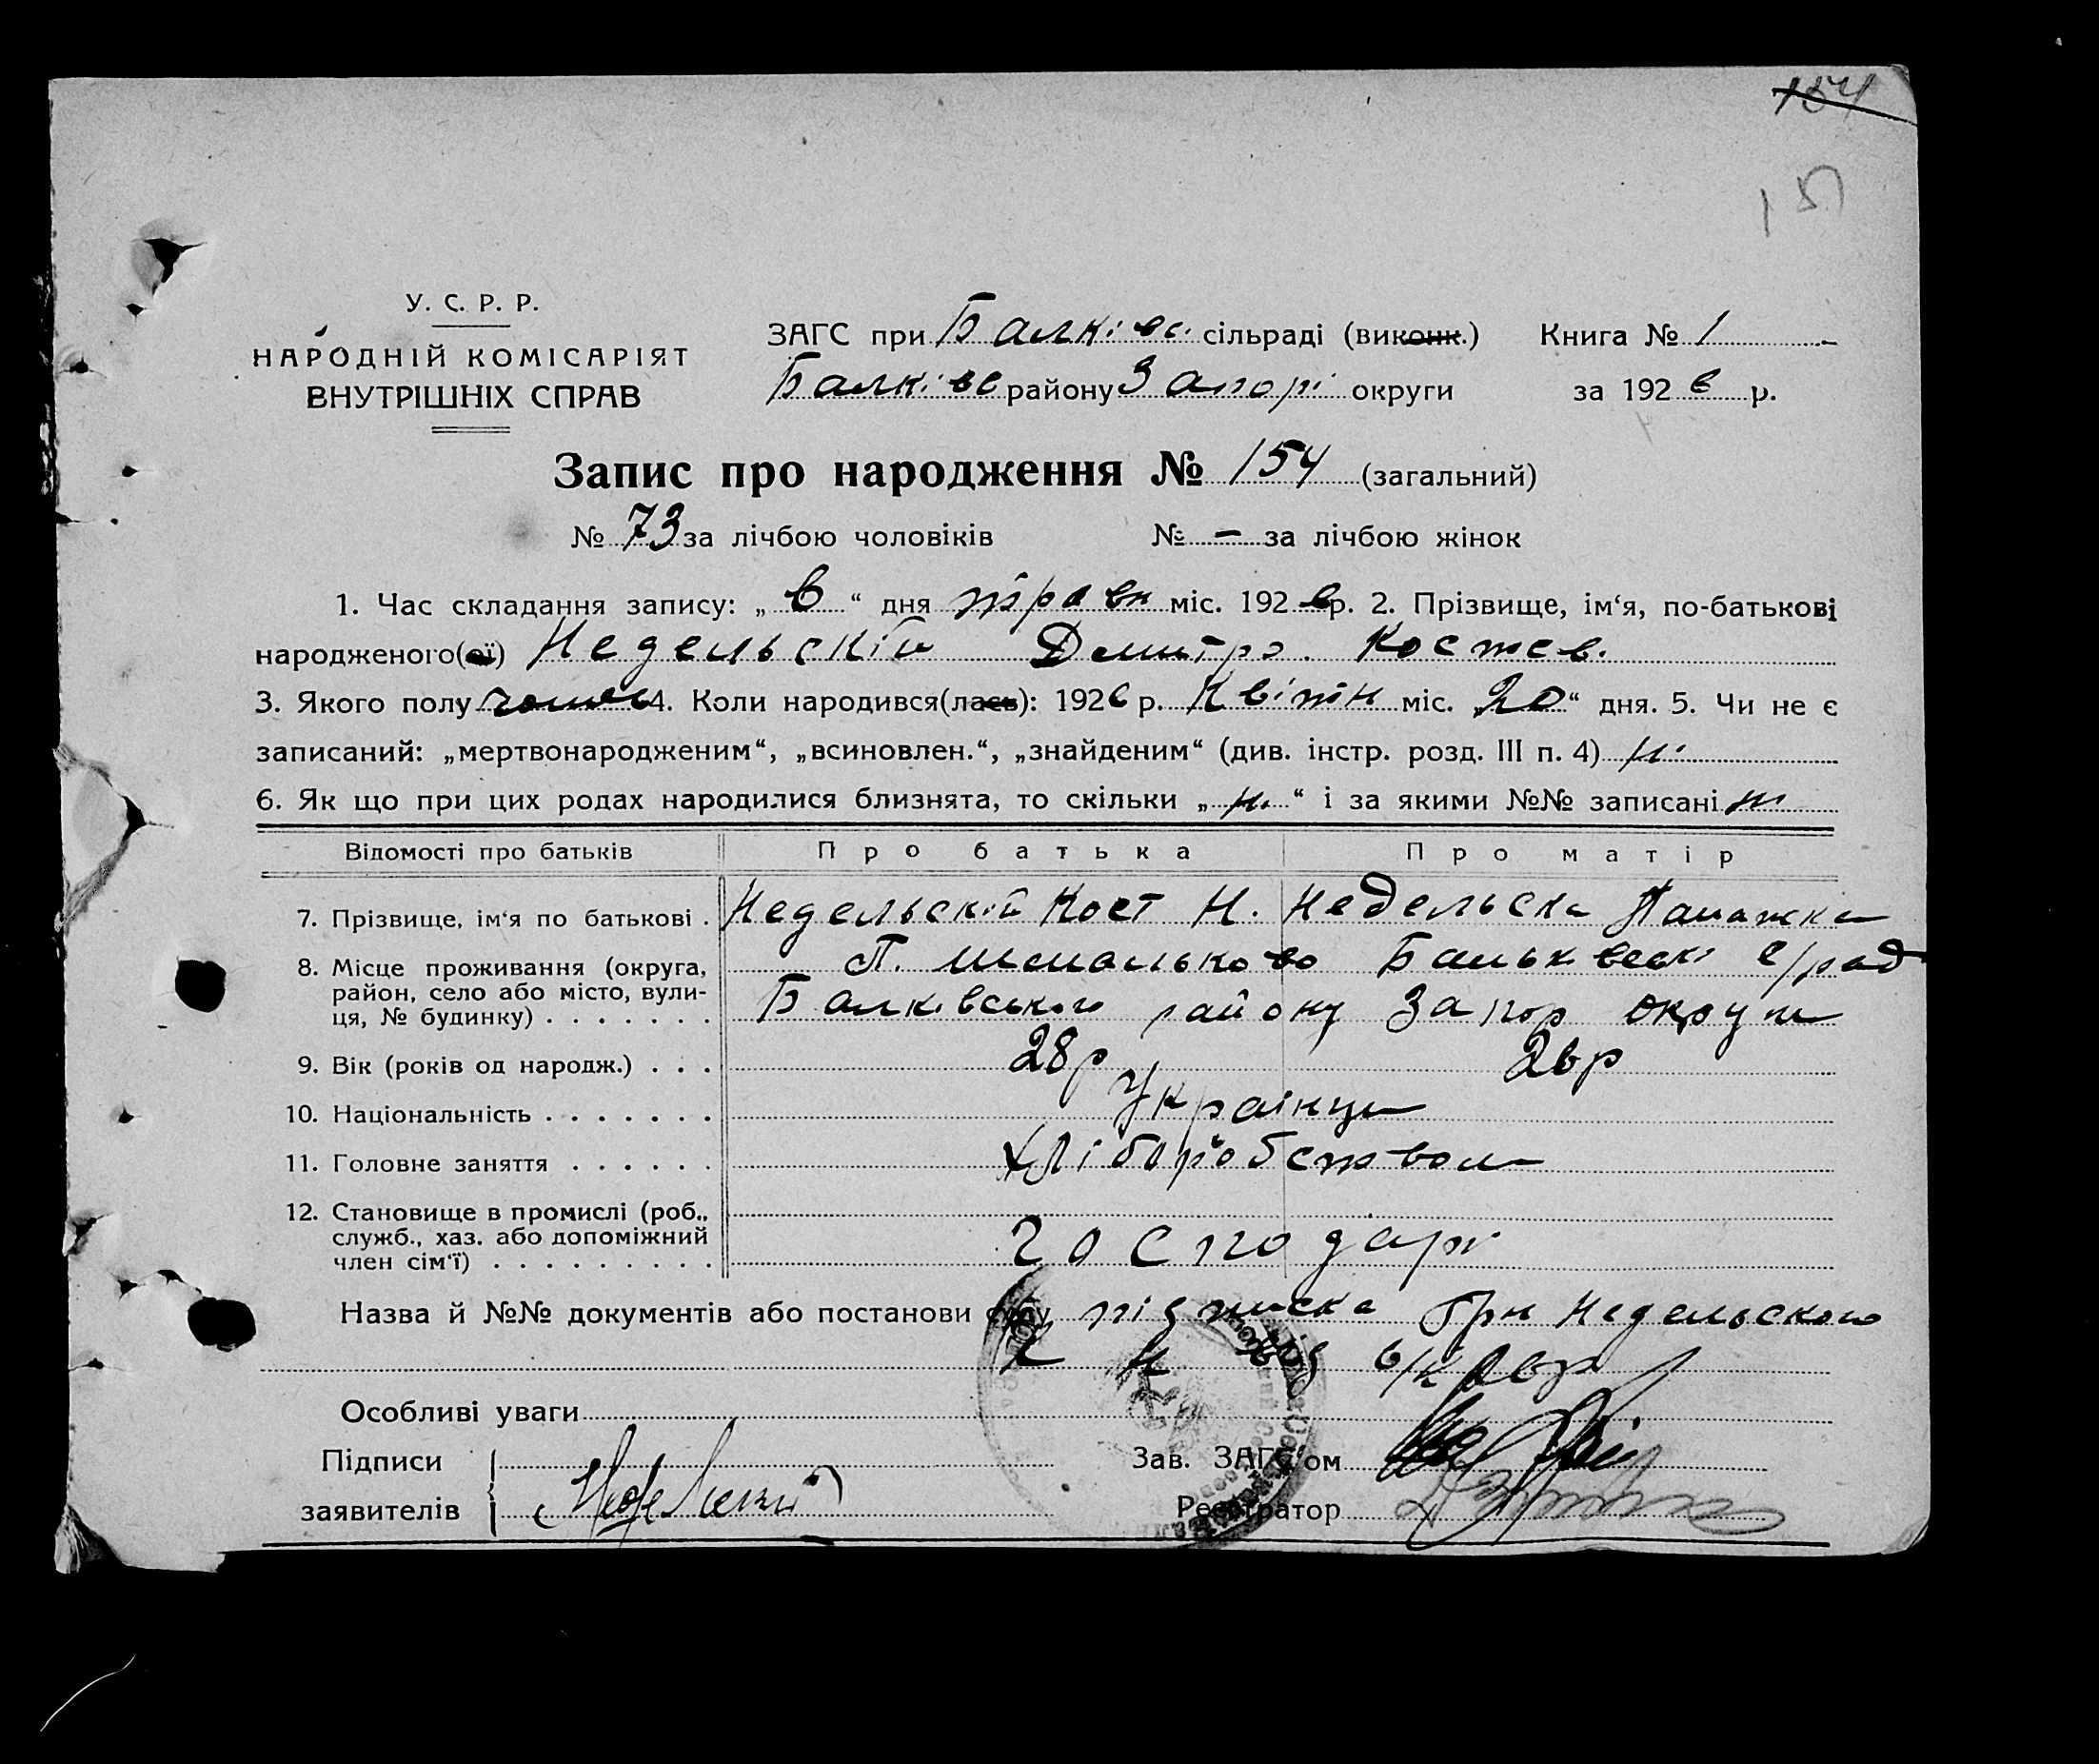 154
151
У. С. Р. Р.
НАРОДНІЙ КОМІСАРІЯТ
ВНУТРІШНІХ СПРАВ
ЗАГС при Балківс. сільраді (виконк.) Книга № 1
Балківс району Запорі округи за 1926 р.
Запис про народження № 154 (загальний)
№ 73 за лічбою чоловіків № – за лічбою жінок
1. Час складання запису: „6“ дня травн міс. 1926р. 2. Прізвище, ім‘я, по-батькові
народженого(ої) Недельскій Дмитро. Костев.
3. Якого полу чолов 4. Коли народився(лась): 1926 р. Квітн міс. „20“ дня. 5. Чи не є
записаний: „мертвонародженим“, „всиновлен.“, „знайденим“ (див. інстр. розд. III п. 4) н.
6. Як що при цих родах народилися близнята, то скільки „н.“ і за якими №№ записані
Відомості про батьків Про батька Про матір
7. Прізвище, ім‘я по батькові . Недельскій Кост Н. Недельска
8. Місце проживання (округа, район, село або місто, вулиця, № будинку) . . . . . . . П. с/рад
Балківського району Запор округи
9. Вік (років од народж.) . . . 28р 26р
10. Національність . . . . . . . Українци
11. Головне заняття . . . . . . хліборобством
12. Становище в промислі (роб., служб., хаз. або допоміжний член сім‘ї) . . . . . . . . . господарі
Назва й №№ документів або постанови суду підписка Грн Недельского
К Н від 6/V 26р
Особливі уваги
Підписи
заявителів Недельский
Зав. ЗАГС‘ом
Реєстратор